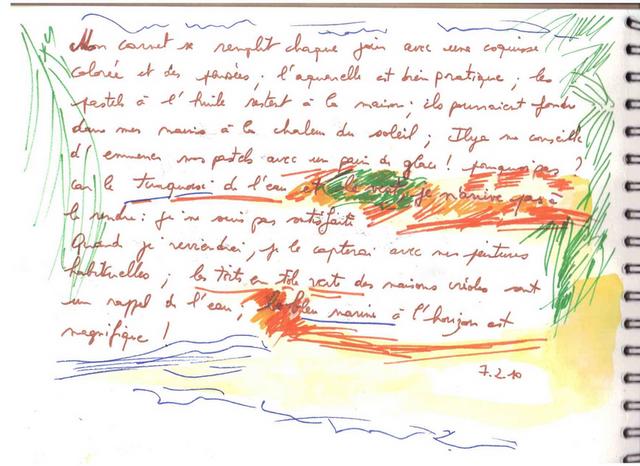 Mon carnet se remplit chaque jour avec une esquisse
colorée et des pensées ; l'aquarelle est bien pratique ; les
pastels à l'huile restent à la maison ; ils pourraient fondre
dans mes mains à la chaleur du soleil ; Ilya me conseille
d'emmener mes pastels avec un pain de glace ! pourquoi pas ?
car le turquoise de l'eau et le vert, je n'arrive pas à
le rendre : je ne suis pas satisfaite
Quand je reviendrai, je le capterai avec mes peintures
habituelles ; les toits en tôle verte des maisons créoles sont
un rappel de l'eau ; le bleu marine à l'horizon est
magnifique !
7.2.10